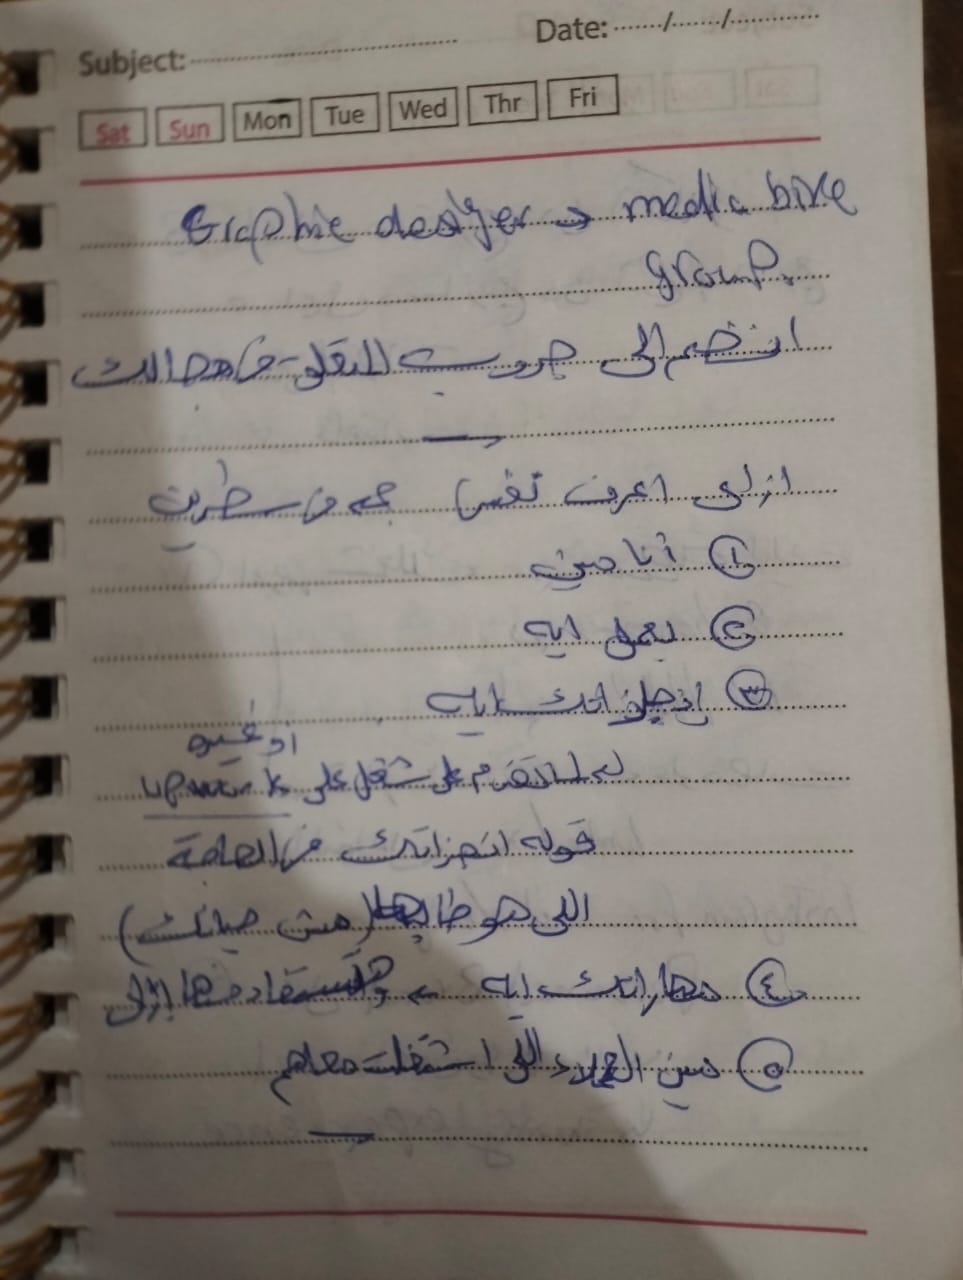 Subject: Date: ....../....../......
Sat Sun Mon Tue Wed Thr Fri
Graphic desiger → media bixe
group.
انضم إلى جروب المتعلق بمجالك
ازاى اعرف نفسى فى سطرين
① أنا مين
② بعمل ايه
③ إنجازاتك ايه
أو غيره
لما اتقدم على شغل على upwork
قوله انجزاتك من الحاجة
اللى هو طالبها (مش حياتك)
④ مهاراتك ايه ← هستفاد منها إزاى
⑤ مين العملاء اللى اشتغلت معاهم